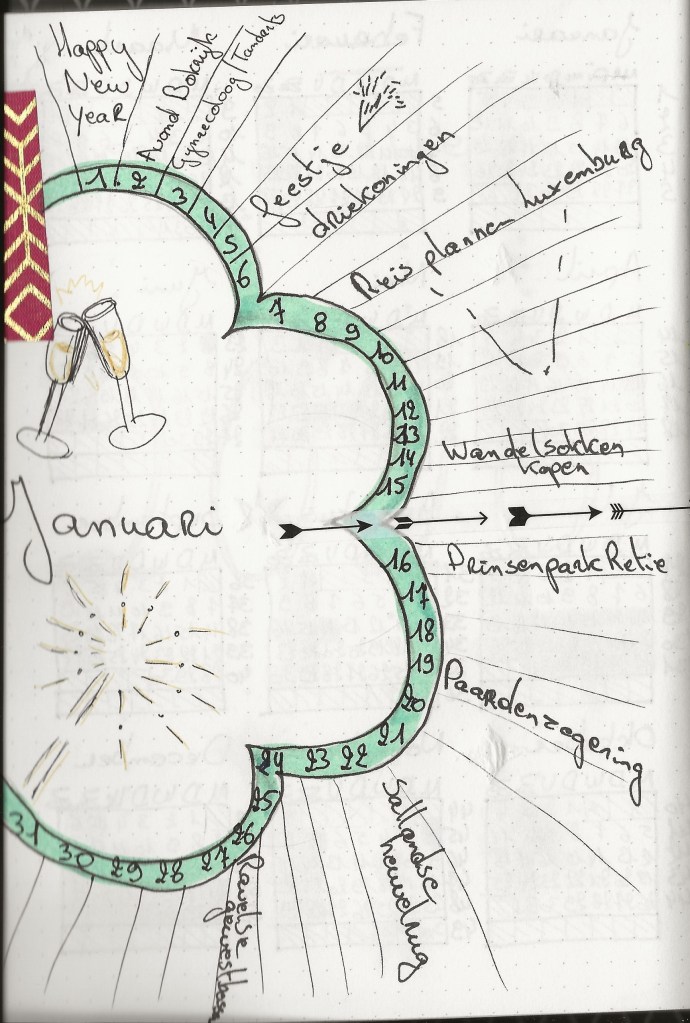 Happy
New
Year
Avond Bokrijk
Gynaecoloog / Tandarts
feestje
driekoningen
Reis plannen Luxemburg
1
2
3
4
5
6
7
8
9
10
11
12
13
14
15
Wandelsokken
kopen
Januari
16
Prinsenpark Retie
17
18
19
20
Paardenzegening
21
22
23
24
Sallandse
heuvelrug
25
26
Ravelse
27
28
29
30
31